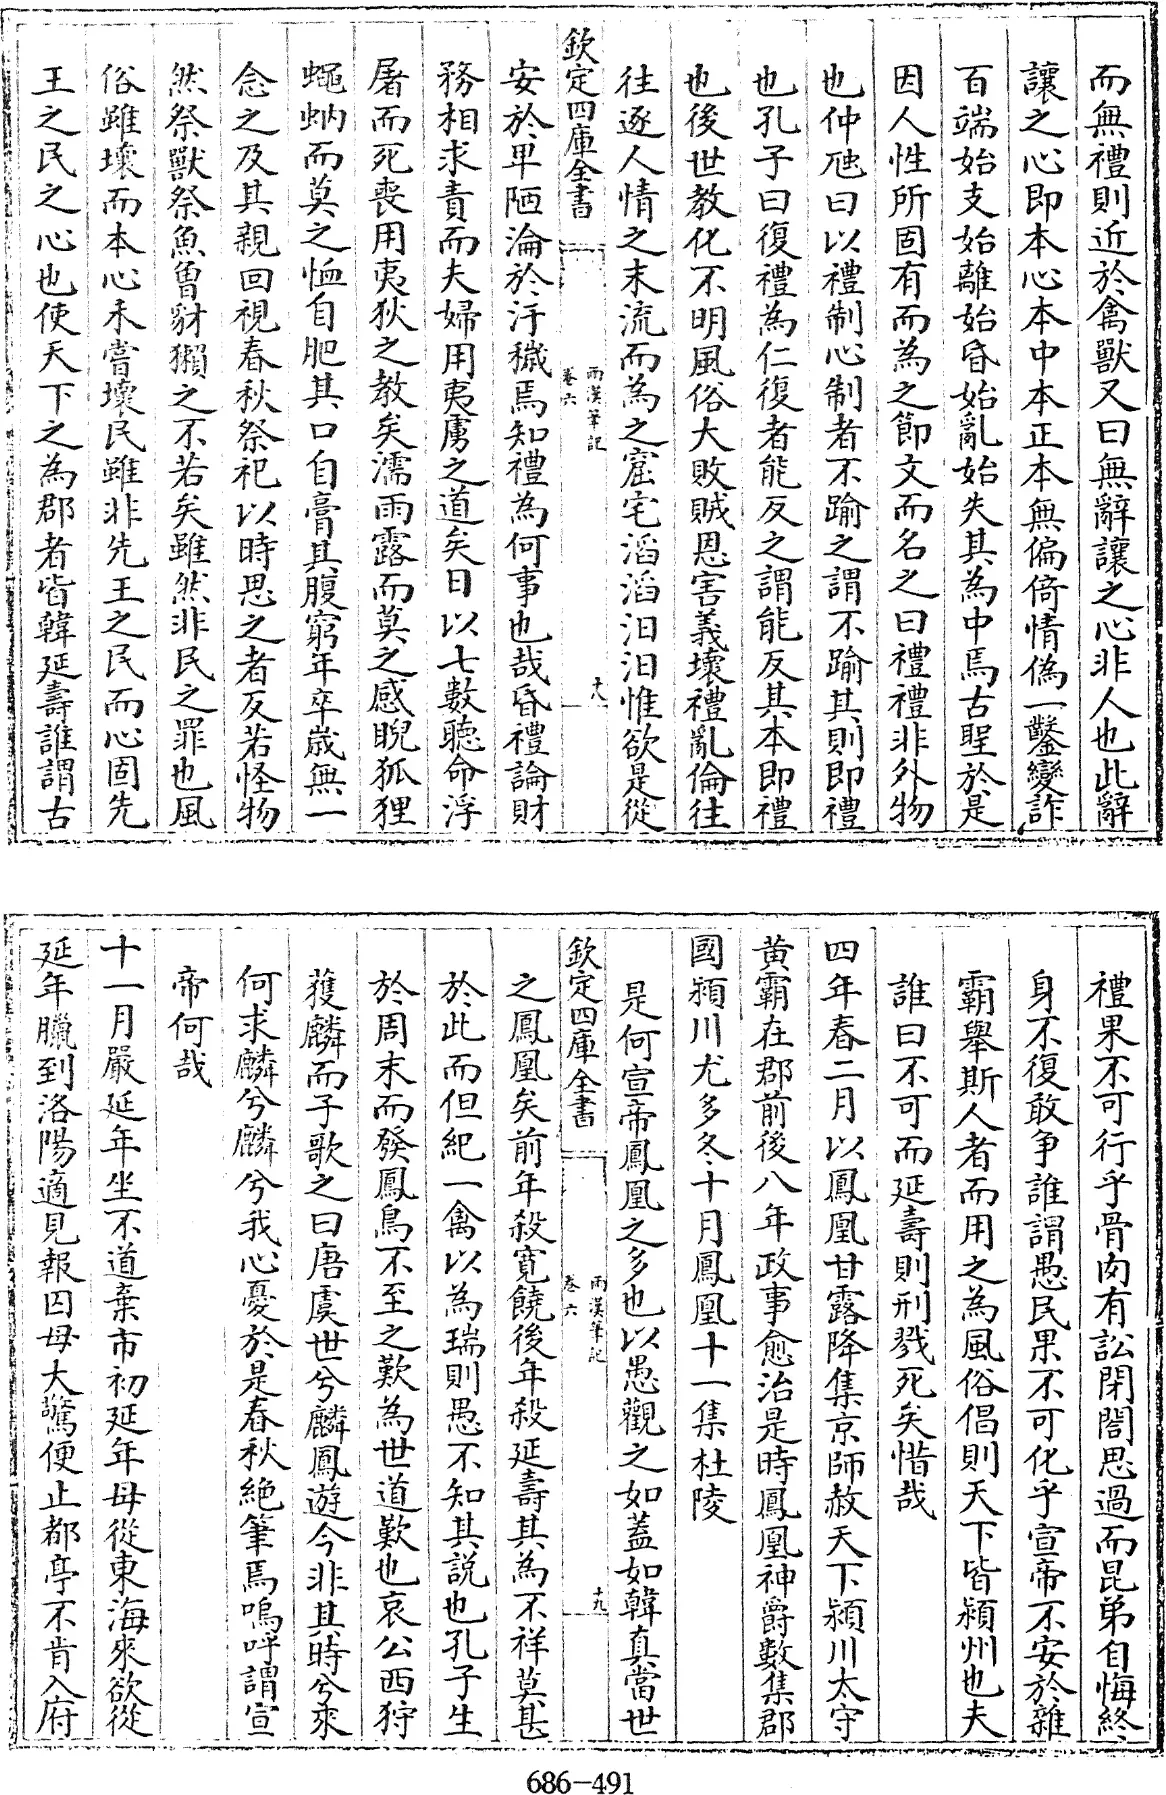 而無禮則近於禽獸又曰無辭讓之心非人也此辭
讓之心即本心本中本正本無偏倚情偽一鑿變詐
百端始支始離始昏始亂始失其為中焉古聖於是
因人性所固有而為之節文而名之曰禮禮非外物
也仲虺曰以禮制心制者不踰之謂不踰其則即禮
也孔子曰復禮為仁復者能反之謂能反其本即禮
也後世教化不明風俗大敗賊恩害義壞禮亂倫往
往逐人情之末流而為之窟宅滔滔汩汩惟欲是從
欽定四庫全書
兩漢筆記
卷六
十八
安於卑陋淪於汙穢焉知禮為何事也哉昏禮論財
務相求責而夫婦用夷虜之道矣日以七數聽命浮
屠而死喪用夷狄之教矣濡雨露而莫之感睨狐狸
蠅蚋而莫之恤自肥其口自膏其腹窮年卒歲無一
念之及其親回視春秋祭祀以時思之者反若怪物
然祭獸祭魚曽豺獺之不若矣雖然非民之罪也風
俗雖壞而本心未嘗壞民雖非先王之民而心固先
王之民之心也使天下之為郡者皆韓延壽誰謂古
禮果不可行乎骨肉有訟閉閤思過而昆弟自悔終
身不復敢争誰謂愚民果不可化乎宣帝不安於雜
霸舉斯人者而用之為風俗倡則天下皆潁州也夫
誰曰不可而延壽則刑戮死矣惜哉
四年春二月以鳳凰甘露降集京師赦天下潁川太守
黄霸在郡前後八年政事愈治是時鳳凰神爵數集郡
國潁川尤多冬十月鳳凰十一集杜陵
是何宣帝鳳凰之多也以愚觀之如蓋如韓真當世
欽定四庫全書
兩漢筆記
卷六
十九
之鳳凰矣前年殺寛饒後年殺延壽其為不祥莫甚
於此而但紀一禽以為瑞則愚不知其説也孔子生
於周末而發鳳鳥不至之歎為世道歎也哀公西狩
獲麟而子歌之曰唐虞世兮麟鳳遊今非其時兮來
何求麟兮麟兮我心憂於是春秋絶筆焉嗚呼謂宣
帝何哉
十一月嚴延年坐不道棄市初延年母從東海來欲從
延年臘到洛陽適見報囚母大驚便止都亭不肯入府
686-491